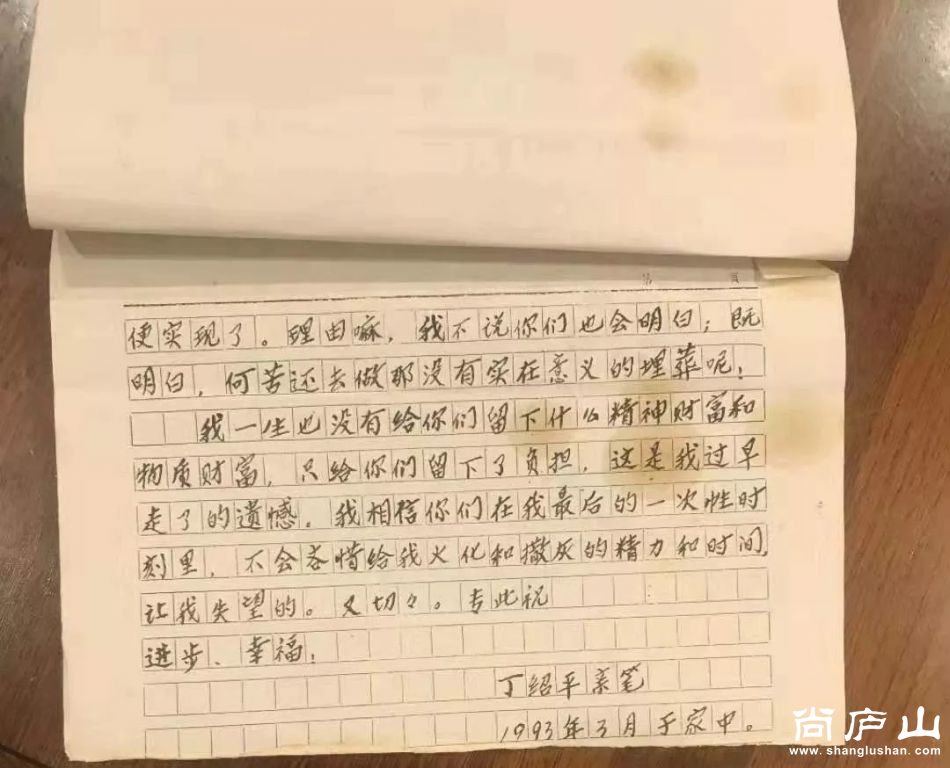 第 页
便实现了。理由嘛，我不说你们也会明白；既
明白，何苦还去做那没有实在意义的埋葬呢！
我一生也没有给你们留下什么精神财富和
物质财富，只给你们留下了负担，这是我过早
走了的遗憾。我相信你们在我最后的一次性时
刻里，不会吝惜给我火化和撒灰的精力和时间，
让我失望的。又切々。专此祝
进步、幸福！
丁绍平亲笔
1993年3月于家中。
尚庐山
www.shanglushan.com